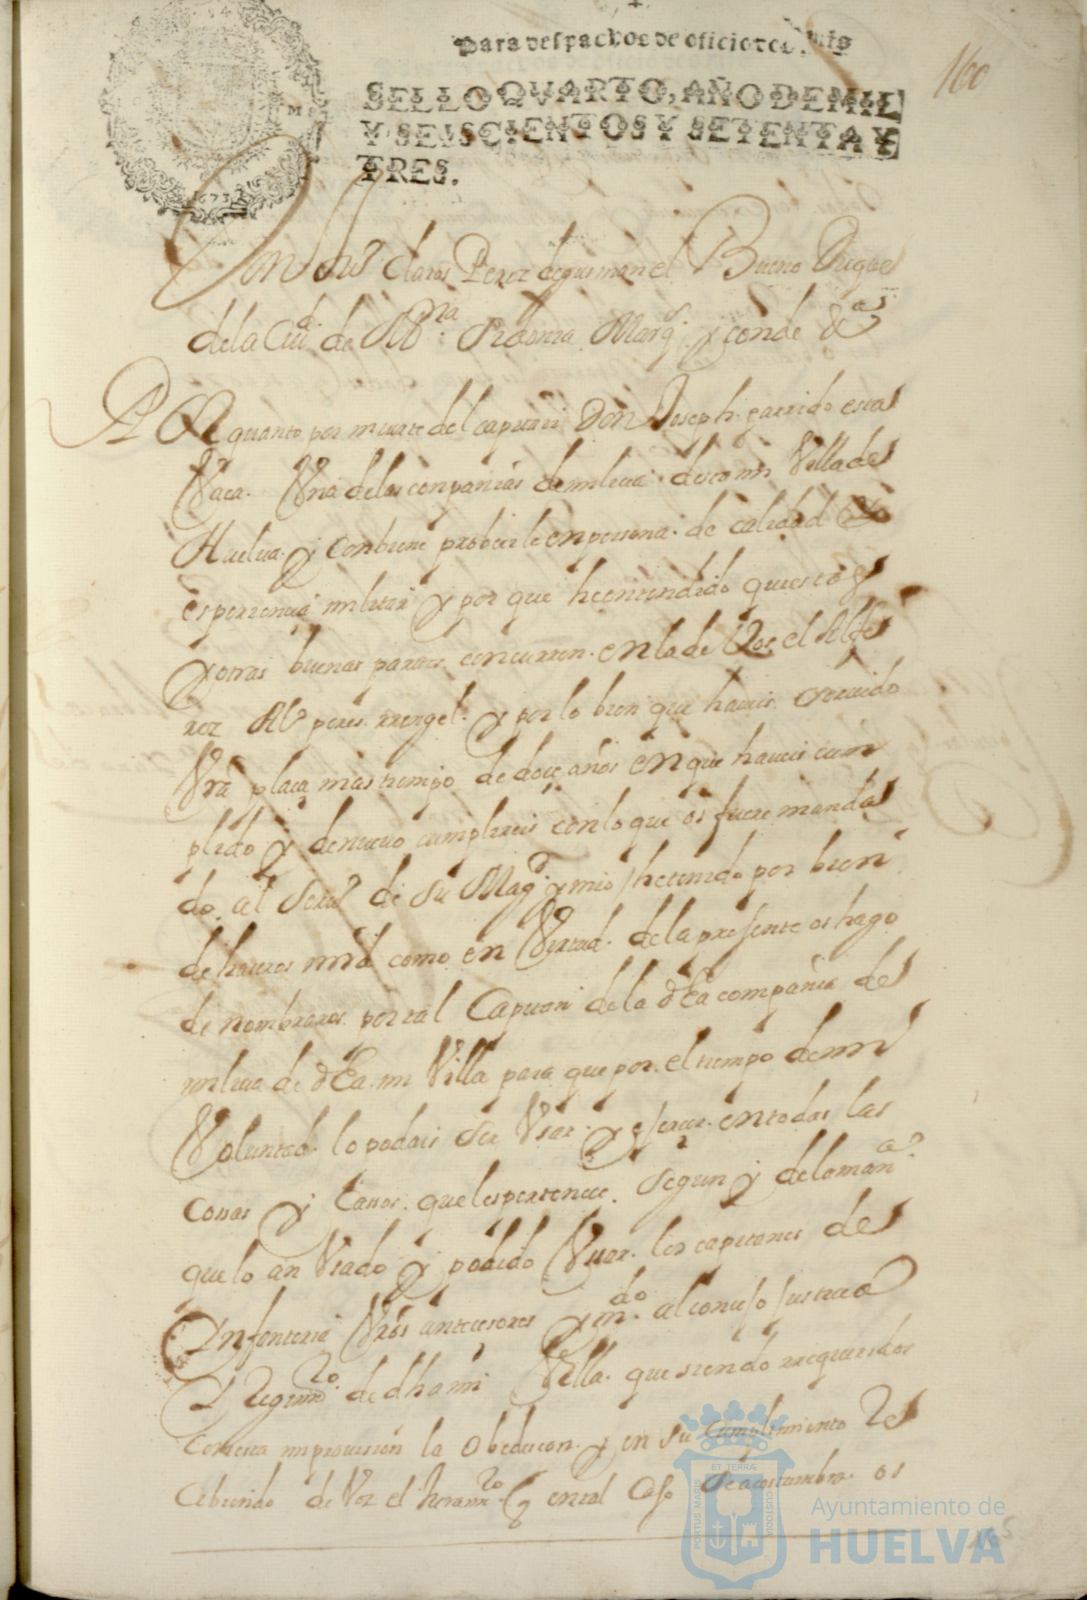 Para despachos de oficio dos mrs
SELLO QVARTO, AÑO DE MIL
Y SEISCIENTOS Y SETENTA Y
TRES.
160
1673
Don Juº Claros Perez de guzman el Bueno Duque
de la Ciud. de Mna Sidonia Marqs. y conde &as
Por quanto por muerte del capitan Don Joseph garrido esta
Vaca. Una de las conpañias de milicia. de mi Villa de
Huelva. y conbiene probeerle en persona. de calidad y
esperiencia militar y por que he entendido questas
y otras buenas partes concurren. en la de Vos el Alfe
rez Alº peres rrengel. y por lo bien que haveis servido
Vra plaça mas tiempo de doçe años en que haveis cum
plido y de nuevo cumplireis con lo que os fuere manda
do. al Servº de Su Magd. y mio / he tenido por bien
de haceros mrd como en Virtud. de la presente os hago
de nombraros por tal Capitan de la dha compañia de
milicia de dha. mi Villa para que por. el tiempo de mi
Voluntad. lo podais ser Usar. y exercer. en todas las
cossas y Casos. que les pertenece. Segun y de la mana.
que lo an Usado y podido Usar. los capitanes de
Ynfanteria Vros antecesores y mdo. al conсejo Justicia
Y Regimto. de dha mi Villa. que siendo rrequeridos
con esta mi provision la Obedescan. y en su Cumplimiento Re
cibiendo de Vos el Juramto. q en tal Caso Se acostumbra. os
165
ET TERRAE
PORTUS MARIS
CUSTODIA
Ayuntamiento de
HUELVA